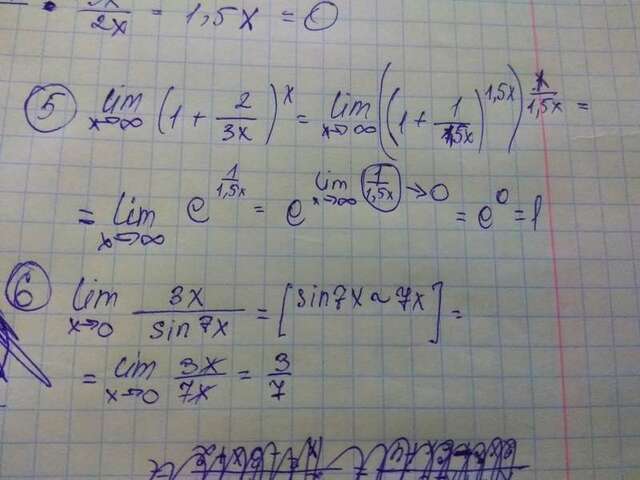 3x/2x = 1,5x = 0
⑤ lim x→∞ (1 + 2/3x)^x = lim x→∞ ((1 + 1/1,5x)^1,5x)^1/1,5x =
= lim x→∞ e^1/1,5x = e^lim x→∞ 1/1,5x →0 = e^0 = 1
⑥ lim x→0 3x/sin7x = [sin7x ~ 7x] =
= lim x→0 3x/7x = 3/7